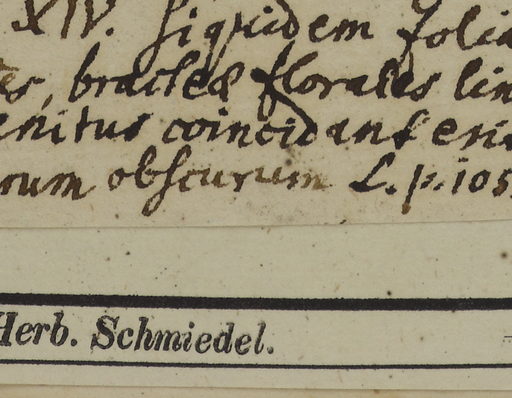 XIV. siquidem folia
es, bracteæ florales lin
enitus coincidant eri
rum obscurum L. p. 105
Herb. Schmiedel.